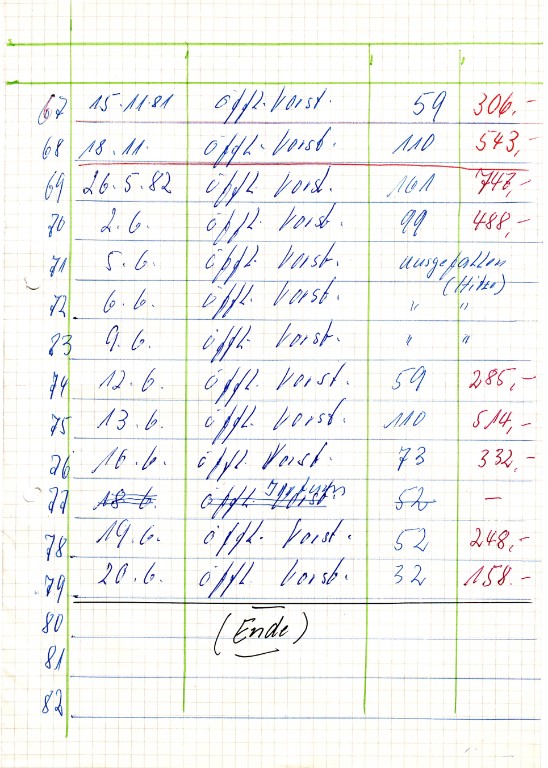 67 15.11.81 öffl. Vorst. 59 306,-
68 18.11. öffl. Vorst. 110 543,-
69 26.5.82 öffl. Vorst. 161 747,-
70 2.6. öffl. Vorst. 99 488,-
71 5.6. öffl. Vorst. ausgefallen
(Hitze)
72 6.6. öffl. Vorst. " "
73 9.6. öffl. Vorst. " "
74 12.6. öffl. Vorst. 59 285,-
75 13.6. öffl. Vorst. 110 514,-
76 16.6. öffl. Vorst. 73 332,-
77 18.6. öffl. Vorst. 52 -
78 19.6. öffl. Vorst. 52 248,-
79 20.6. öffl. Vorst. 32 158.-
80 (Ende)
81
82